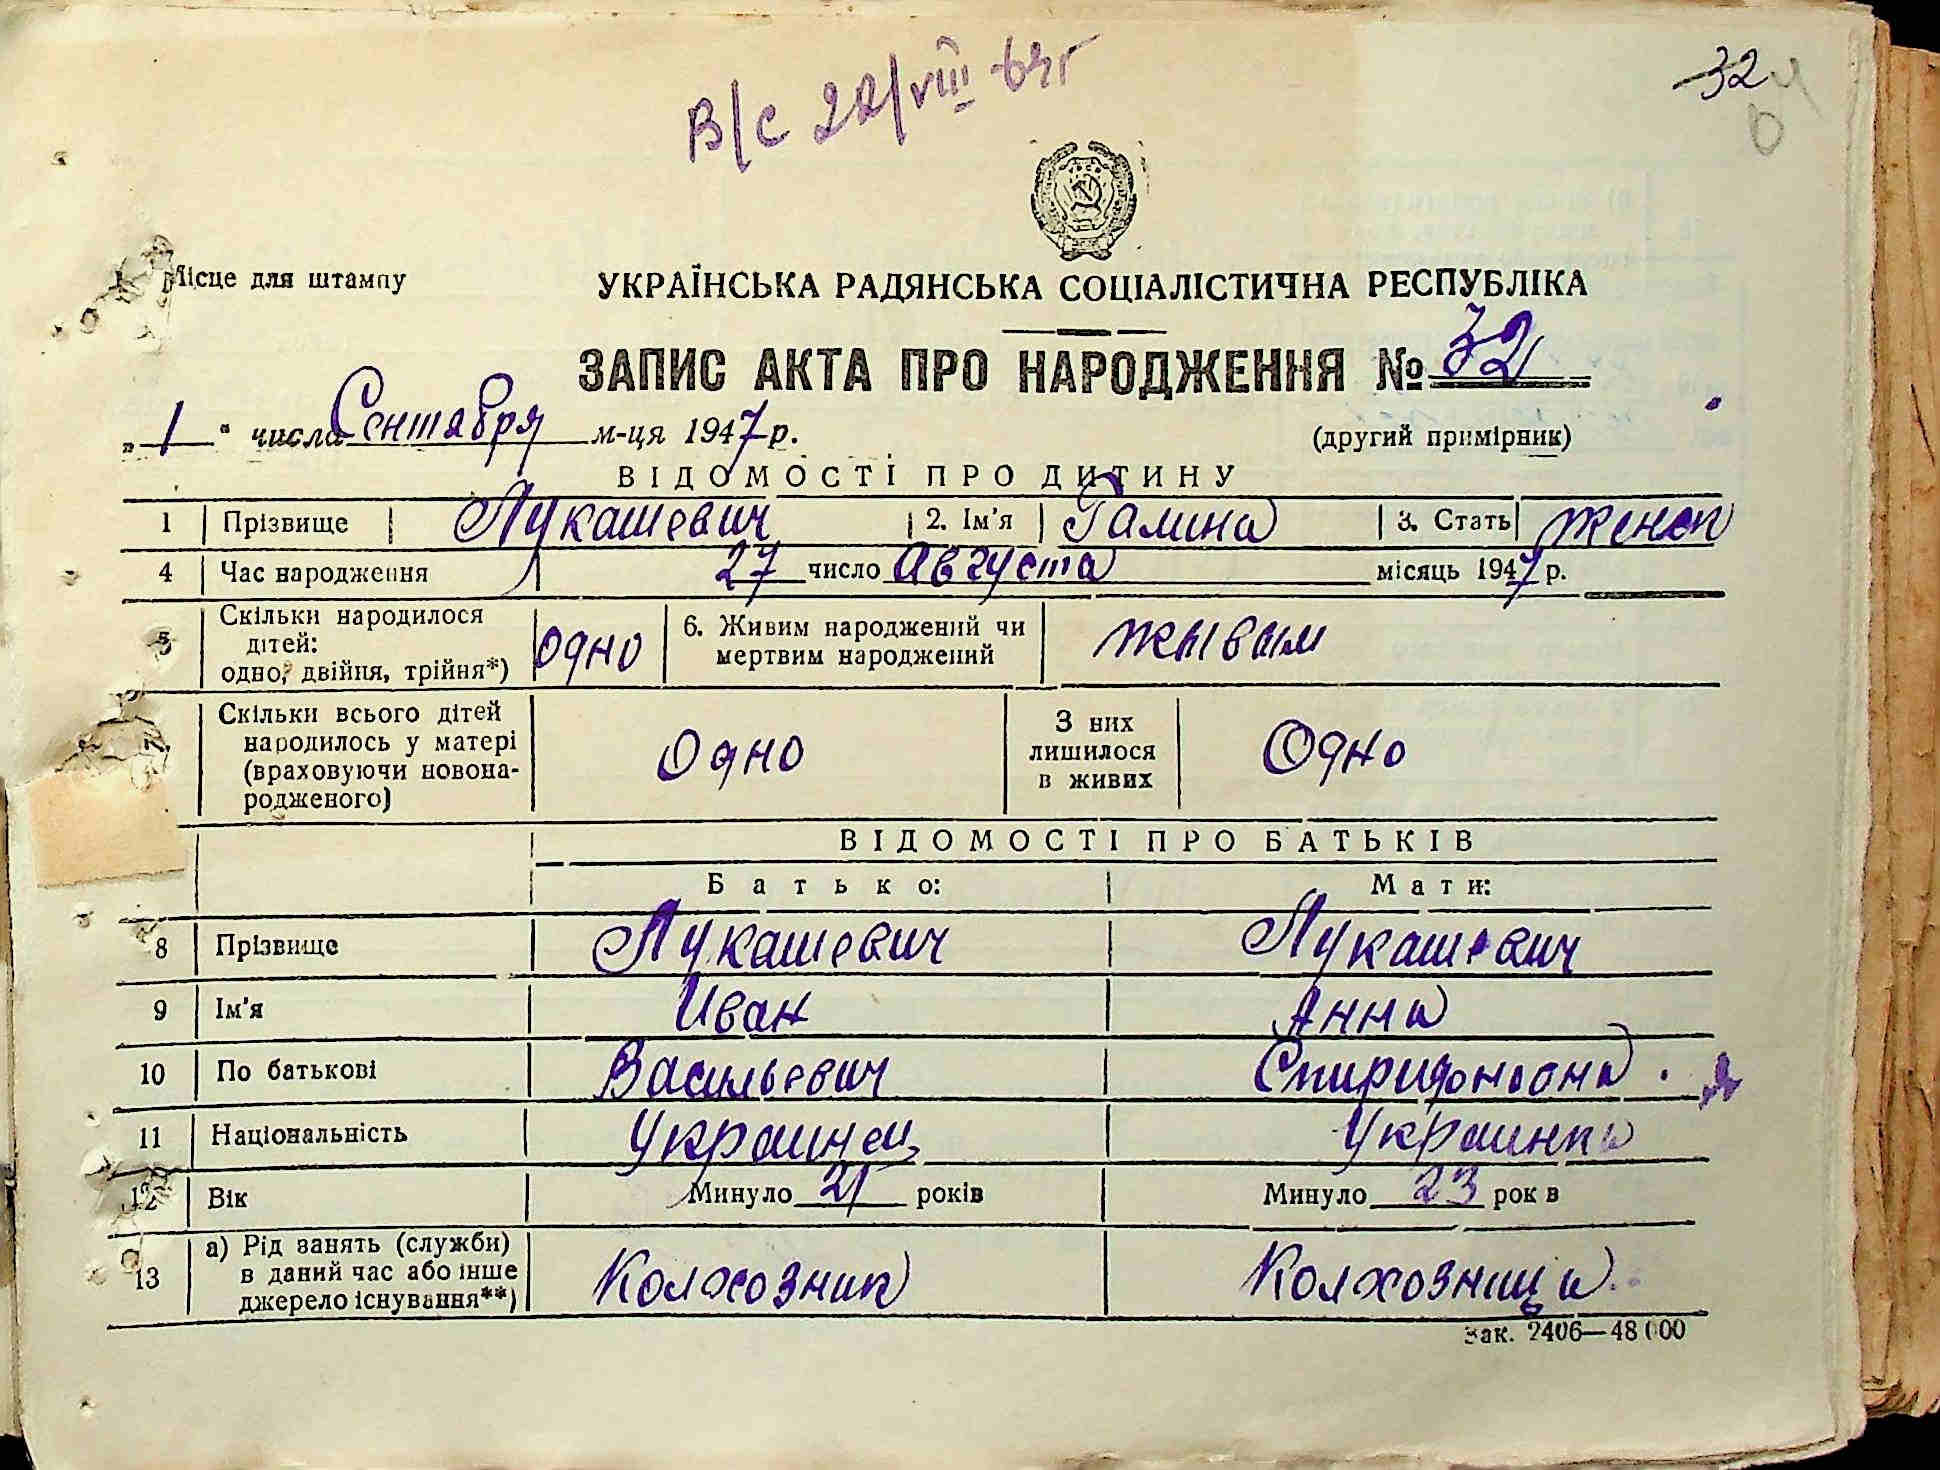 В/с 22/VIII-64г
32
Місце для штампу
УКРАЇНСЬКА РАДЯНСЬКА СОЦІАЛІСТИЧНА РЕСПУБЛІКА
ЗАПИС АКТА ПРО НАРОДЖЕННЯ № 32
„1“ числа Сентября м-ця 1947 р.
(другий примірник)
ВІДОМОСТІ ПРО ДИТИНУ
1 Прізвище Лукашевич 2. Ім'я Галина 3. Стать женск
4 Час народження 27 число Августа місяць 1947 р.
5 Скільки народилося дітей: одно, двійня, трійня*) одно 6. Живим народжений чи мертвим народжений живым
7. Скільки всього дітей народилось у матері (враховуючи новонародженого) Одно З них лишилося в живих Одно
ВІДОМОСТІ ПРО БАТЬКІВ
Батько: Мати:
8 Прізвище Лукашевич Лукашевич
9 Ім'я Иван Анна
10 По батькові Васильевич Спиридоновна
11 Національність Украинец Украинка
12 Вік Минуло 21 років Минуло 23 рок в
13 а) Рід занять (служби) в даний час або інше джерело існування**) Колхозник Колхозница
Зак. 2406—48 000